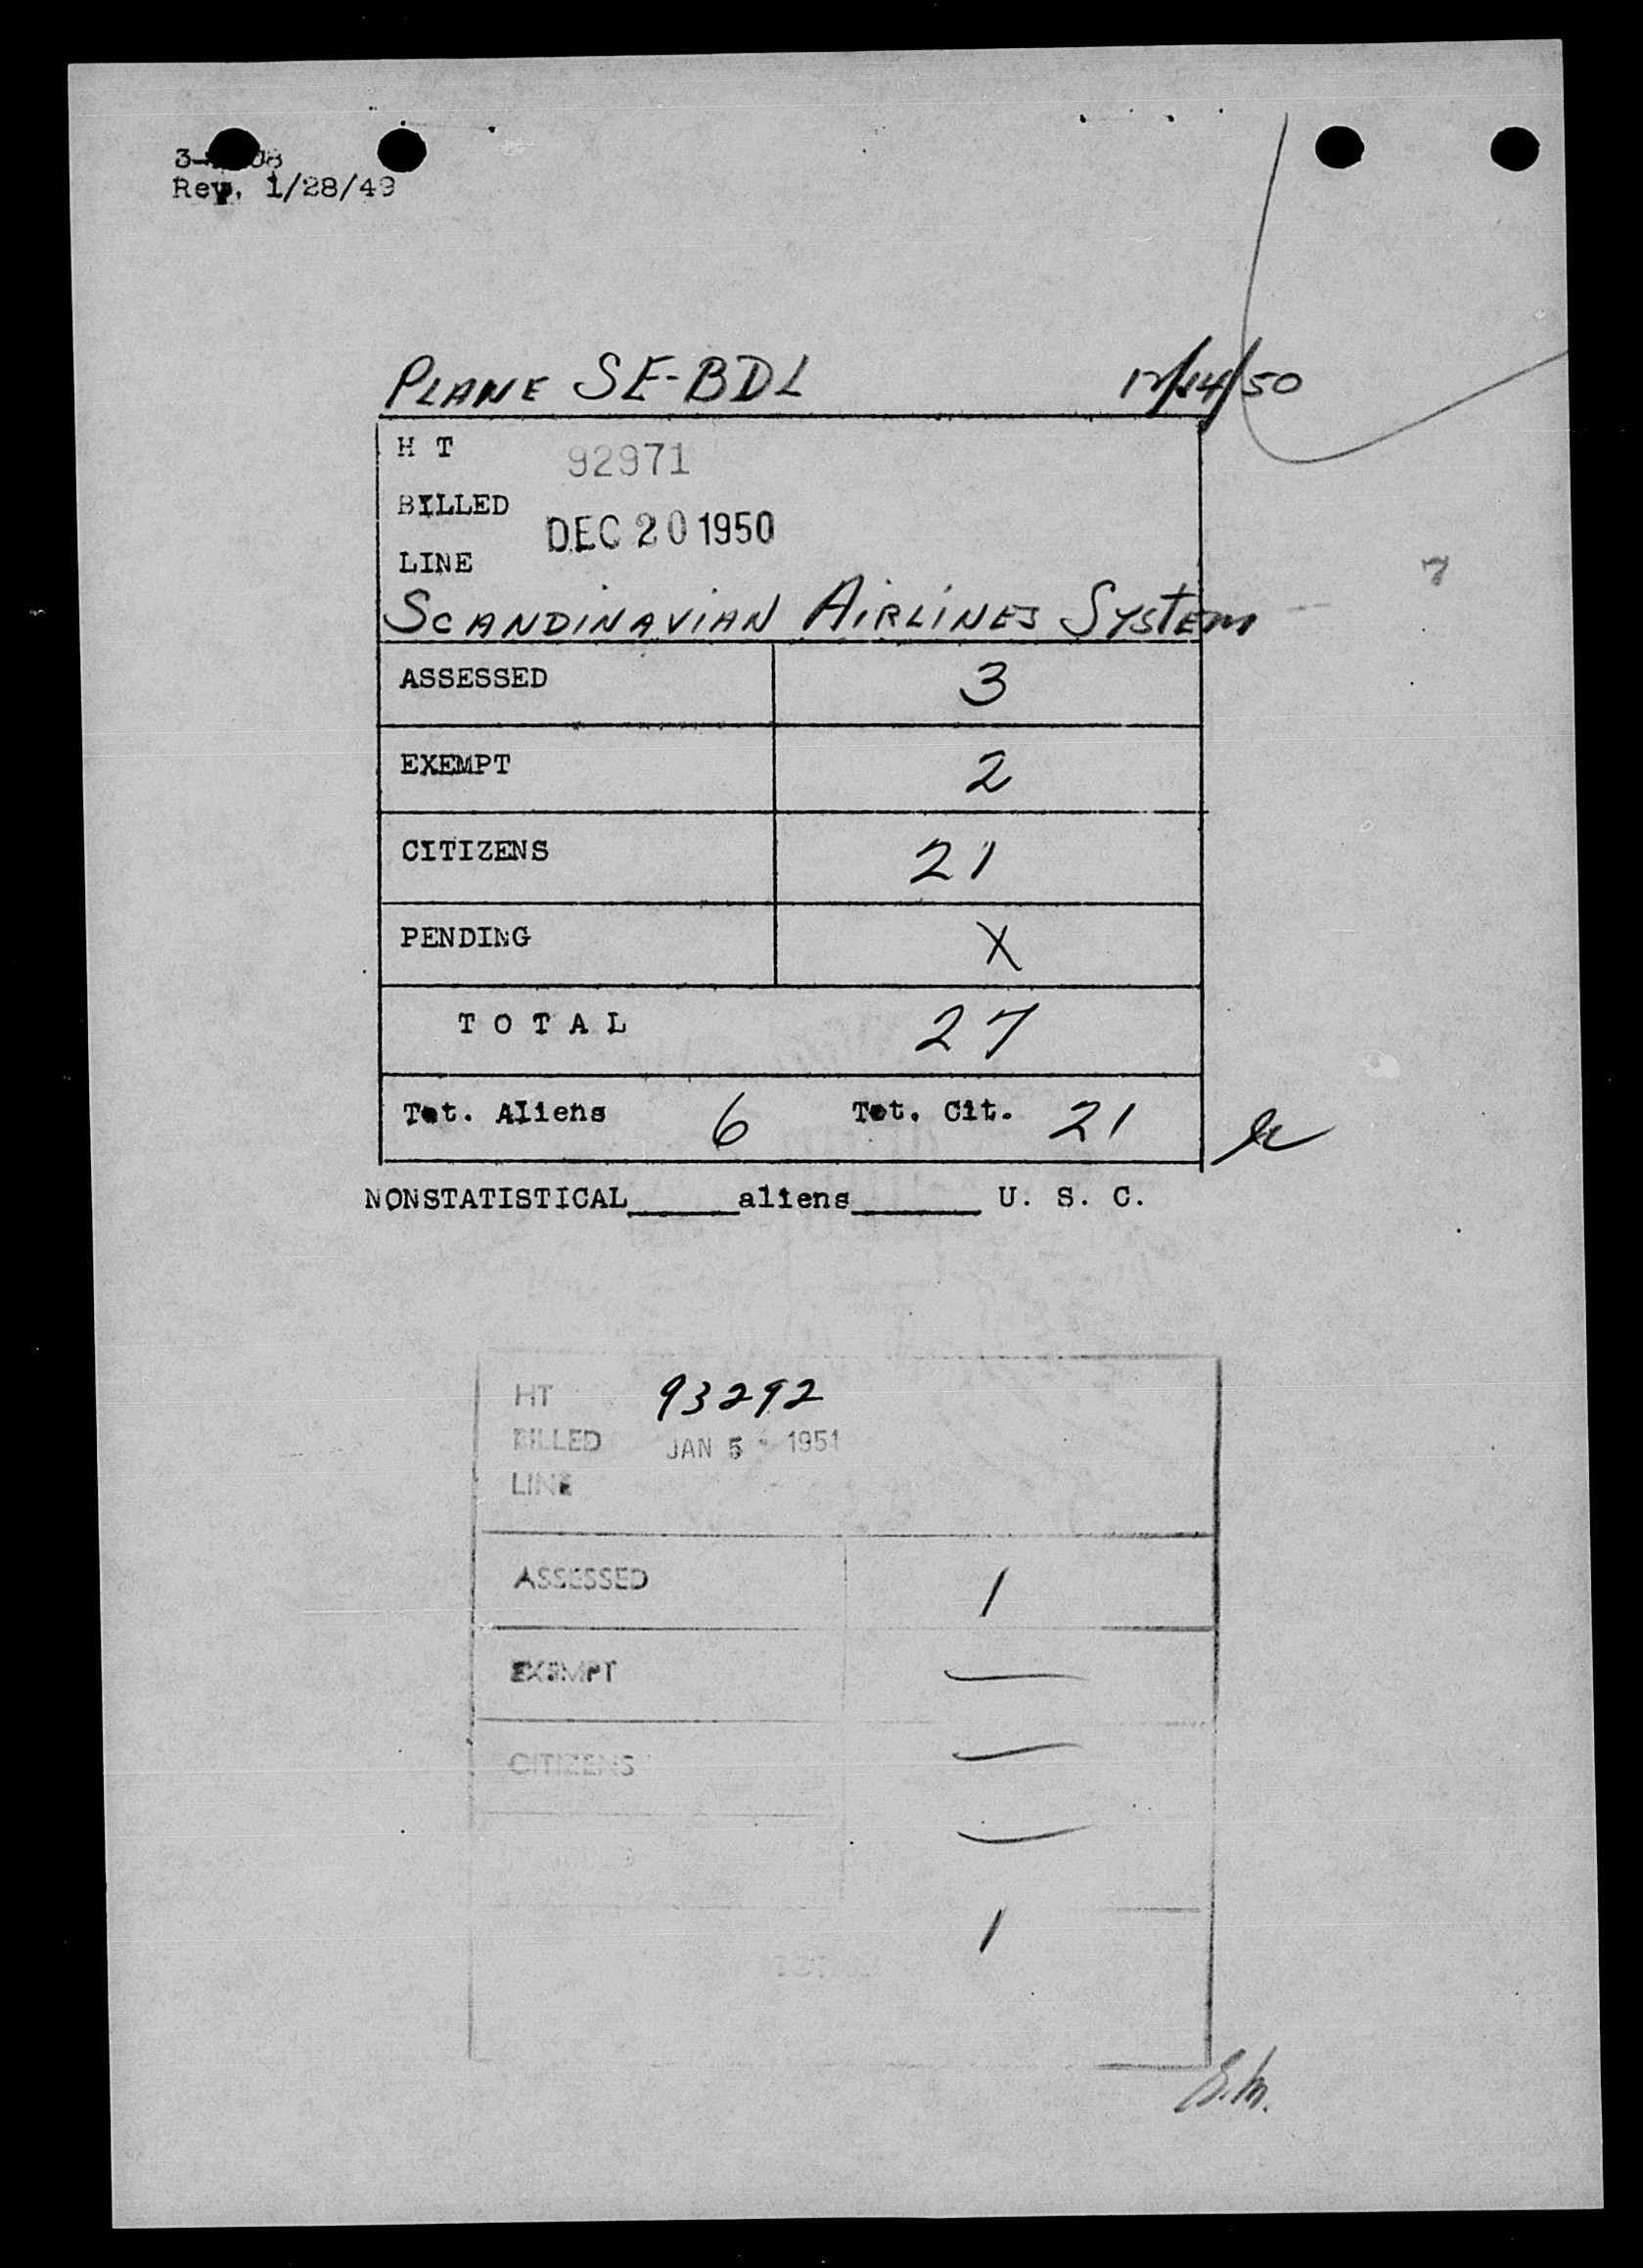 Rev. 1/28/49
PLANE SE-BDL 12/14/50
H T 92971
BILLED DEC 20 1950
LINE
SCANDINAVIAN AIRLINES SYSTEM
ASSESSED 3
EXEMPT 2
CITIZENS 21
PENDING X
T O T A L 27
Tot. Aliens 6 Tot. Cit. 21
NONSTATISTICAL______aliens_______ U. S. C.
HT 93292
BILLED JAN 5 - 1951
LINE
ASSESSED 1
EXEMPT —
CITIZENS —
—
1